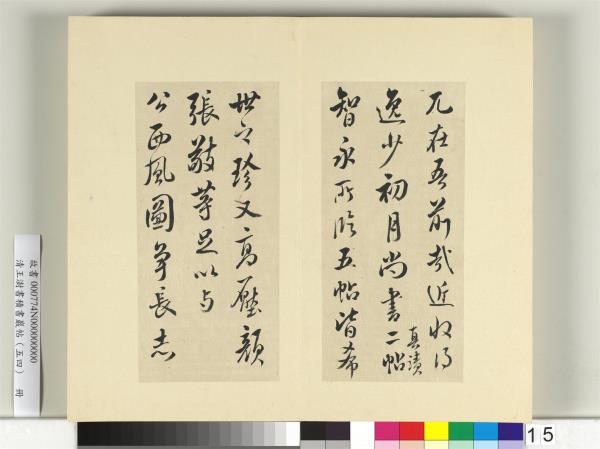 兀在吾前哉近收得
逸少初月尚書二帖真蹟
智永所臨五帖皆希
世之珍又高壓顏
張敬等足以与
公西風圖爭長志
故書000774N000000000
清王澍書積書巖帖（五四） 冊
15